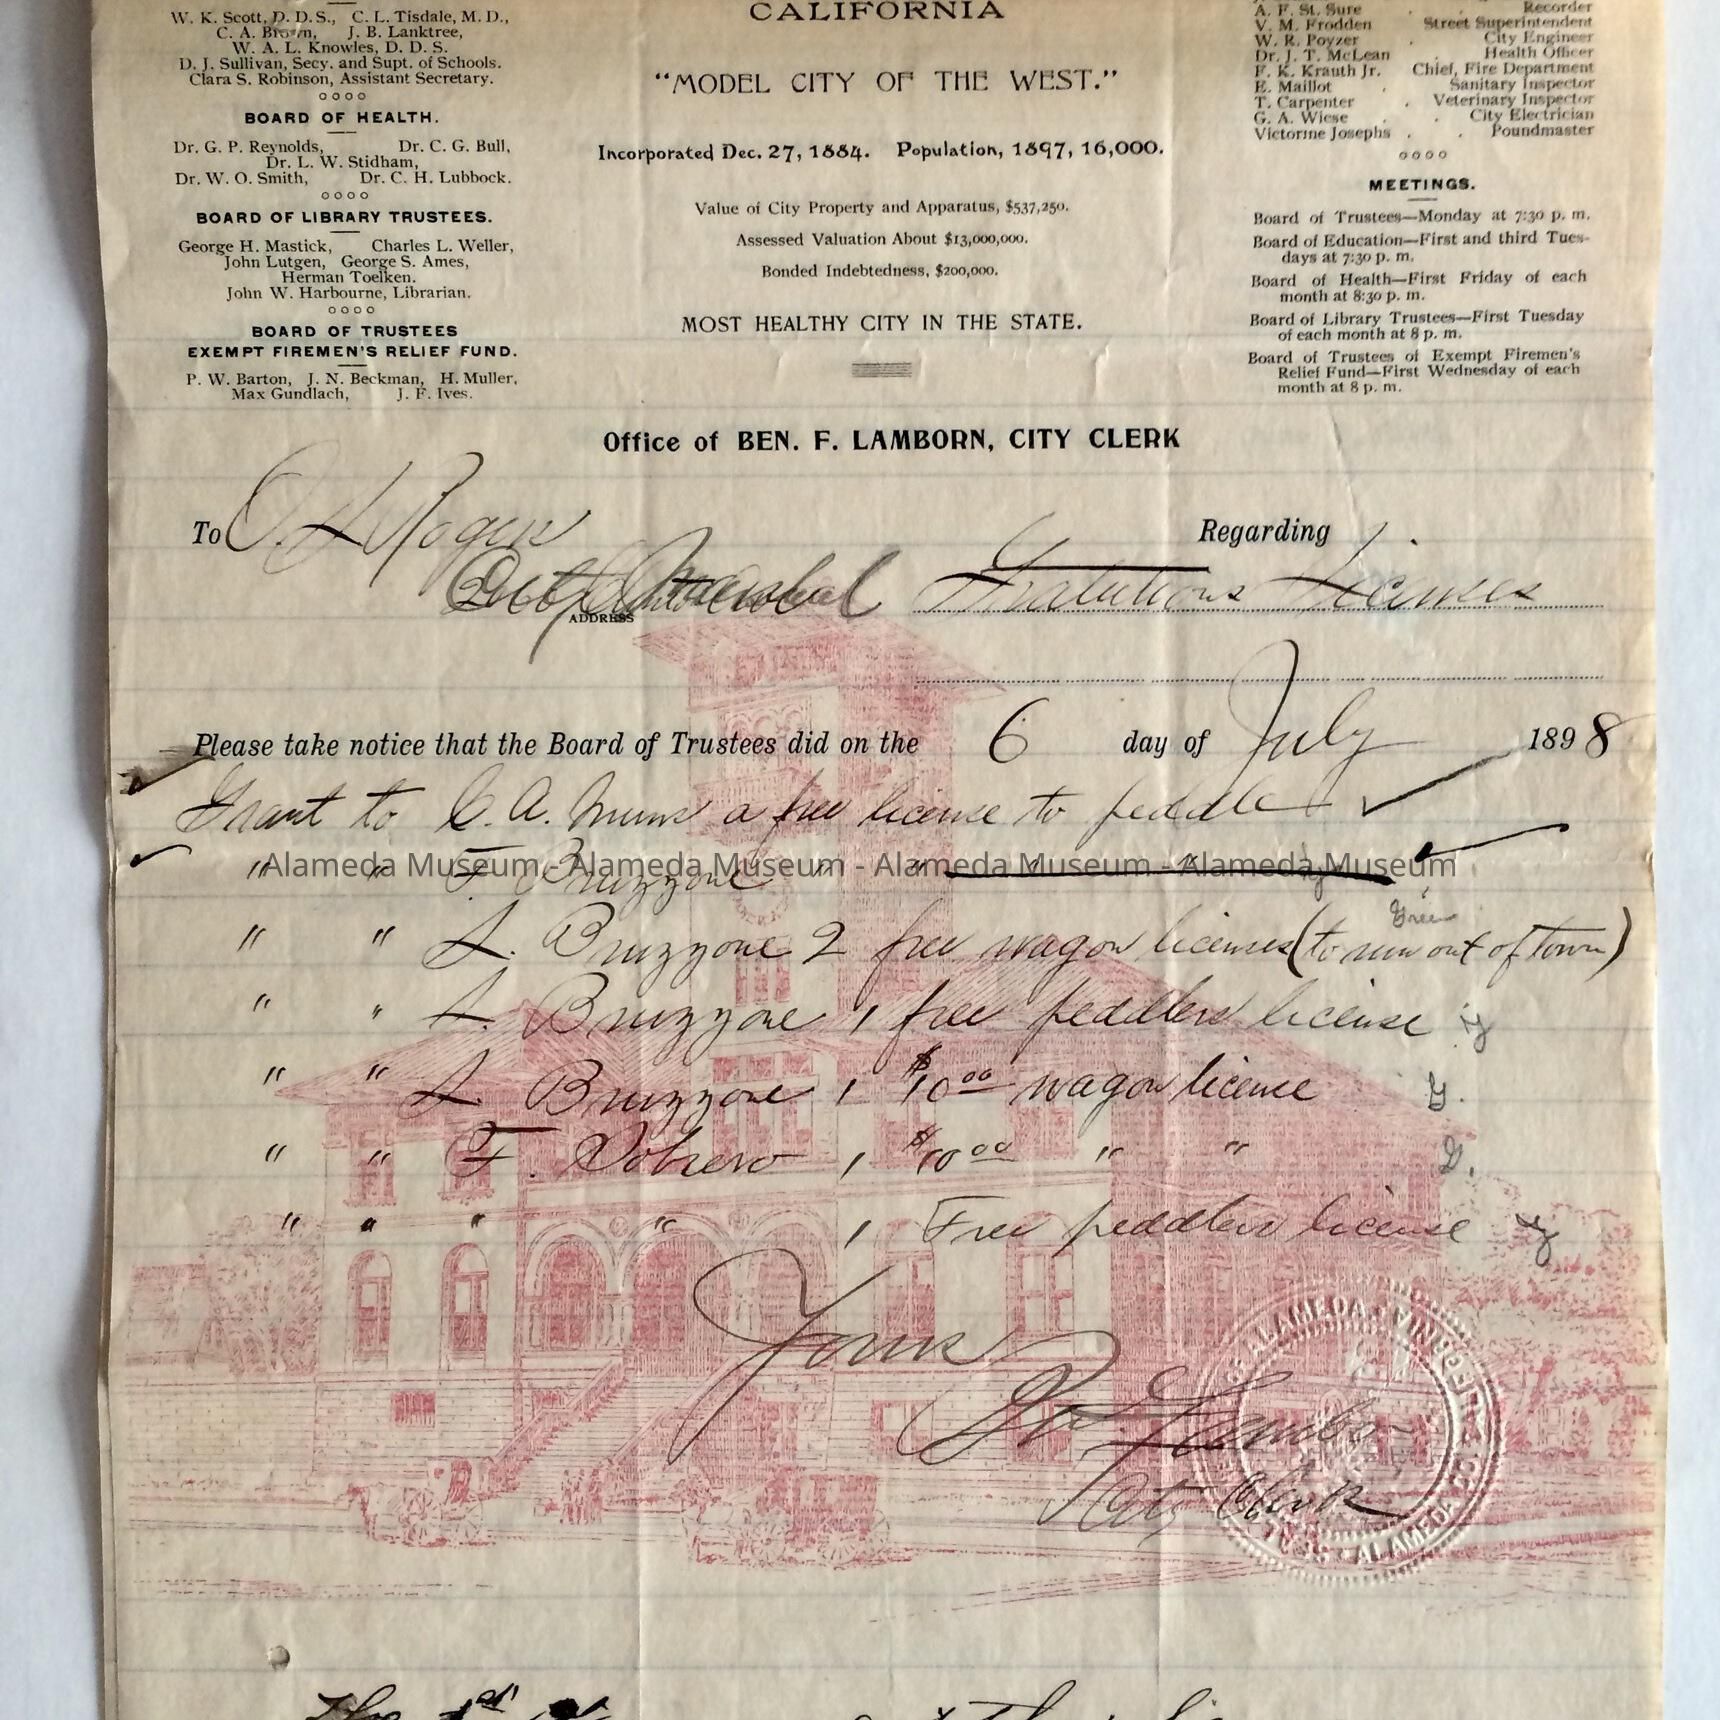 W. K. Scott, D. D. S., C. L. Tisdale, M. D.,
C. A. Brown, J. B. Lanktree,
W. A. L. Knowles, D. D. S.
D. J. Sullivan, Secy. and Supt. of Schools.
Clara S. Robinson, Assistant Secretary.
BOARD OF HEALTH.
Dr. G. P. Reynolds, Dr. C. G. Bull,
Dr. L. W. Stidham,
Dr. W. O. Smith, Dr. C. H. Lubbock.
BOARD OF LIBRARY TRUSTEES.
George H. Mastick, Charles L. Weller,
John Lutgen, George S. Ames,
Herman Toelken.
John W. Harbourne, Librarian.
BOARD OF TRUSTEES
EXEMPT FIREMEN'S RELIEF FUND.
P. W. Barton, J. N. Beckman, H. Muller,
Max Gundlach, J. F. Ives.
CALIFORNIA
"MODEL CITY OF THE WEST."
Incorporated Dec. 27, 1884. Population, 1897, 16,000.
Value of City Property and Apparatus, $537,250.
Assessed Valuation About $13,000,000.
Bonded Indebtedness, $200,000.
MOST HEALTHY CITY IN THE STATE.
A. F. St. Sure . . Recorder
V. M. Frodden Street Superintendent
W. R. Poyzer . City Engineer
Dr. J. T. McLean . Health Officer
F. K. Krauth Jr. Chief, Fire Department
E. Maillot . Sanitary Inspector
T. Carpenter . Veterinary Inspector
G. A. Wiese . . City Electrician
Victorine Josephs . . Poundmaster
MEETINGS.
Board of Trustees—Monday at 7:30 p. m.
Board of Education—First and third Tues-
days at 7:30 p. m.
Board of Health—First Friday of each
month at 8:30 p. m.
Board of Library Trustees—First Tuesday
of each month at 8 p. m.
Board of Trustees of Exempt Firemen's
Relief Fund—First Wednesday of each
month at 8 p. m.
Office of BEN. F. LAMBORN, CITY CLERK
To Rogers Regarding
Marshal Gratuitous Licenses
ADDRESS
Please take notice that the Board of Trustees did on the 6 day of July 1898
Grant to C. A. a free license to peddle
" " F Bruzzone " "
Alameda Museum - Alameda Museum - Alameda Museum - Alameda Museum
Green
" " L. Bruzzone 2 free wagon licenses (to run out of town)
" " L. Bruzzone 1 free peddlers license
" " L Bruzzone 1 $10.00 wagon license G.
" " F. Sobrero 1 $10.00 " " G.
" " " " 1 Free peddlers license
Yours
Lamborn
City Clerk
ALAMEDA